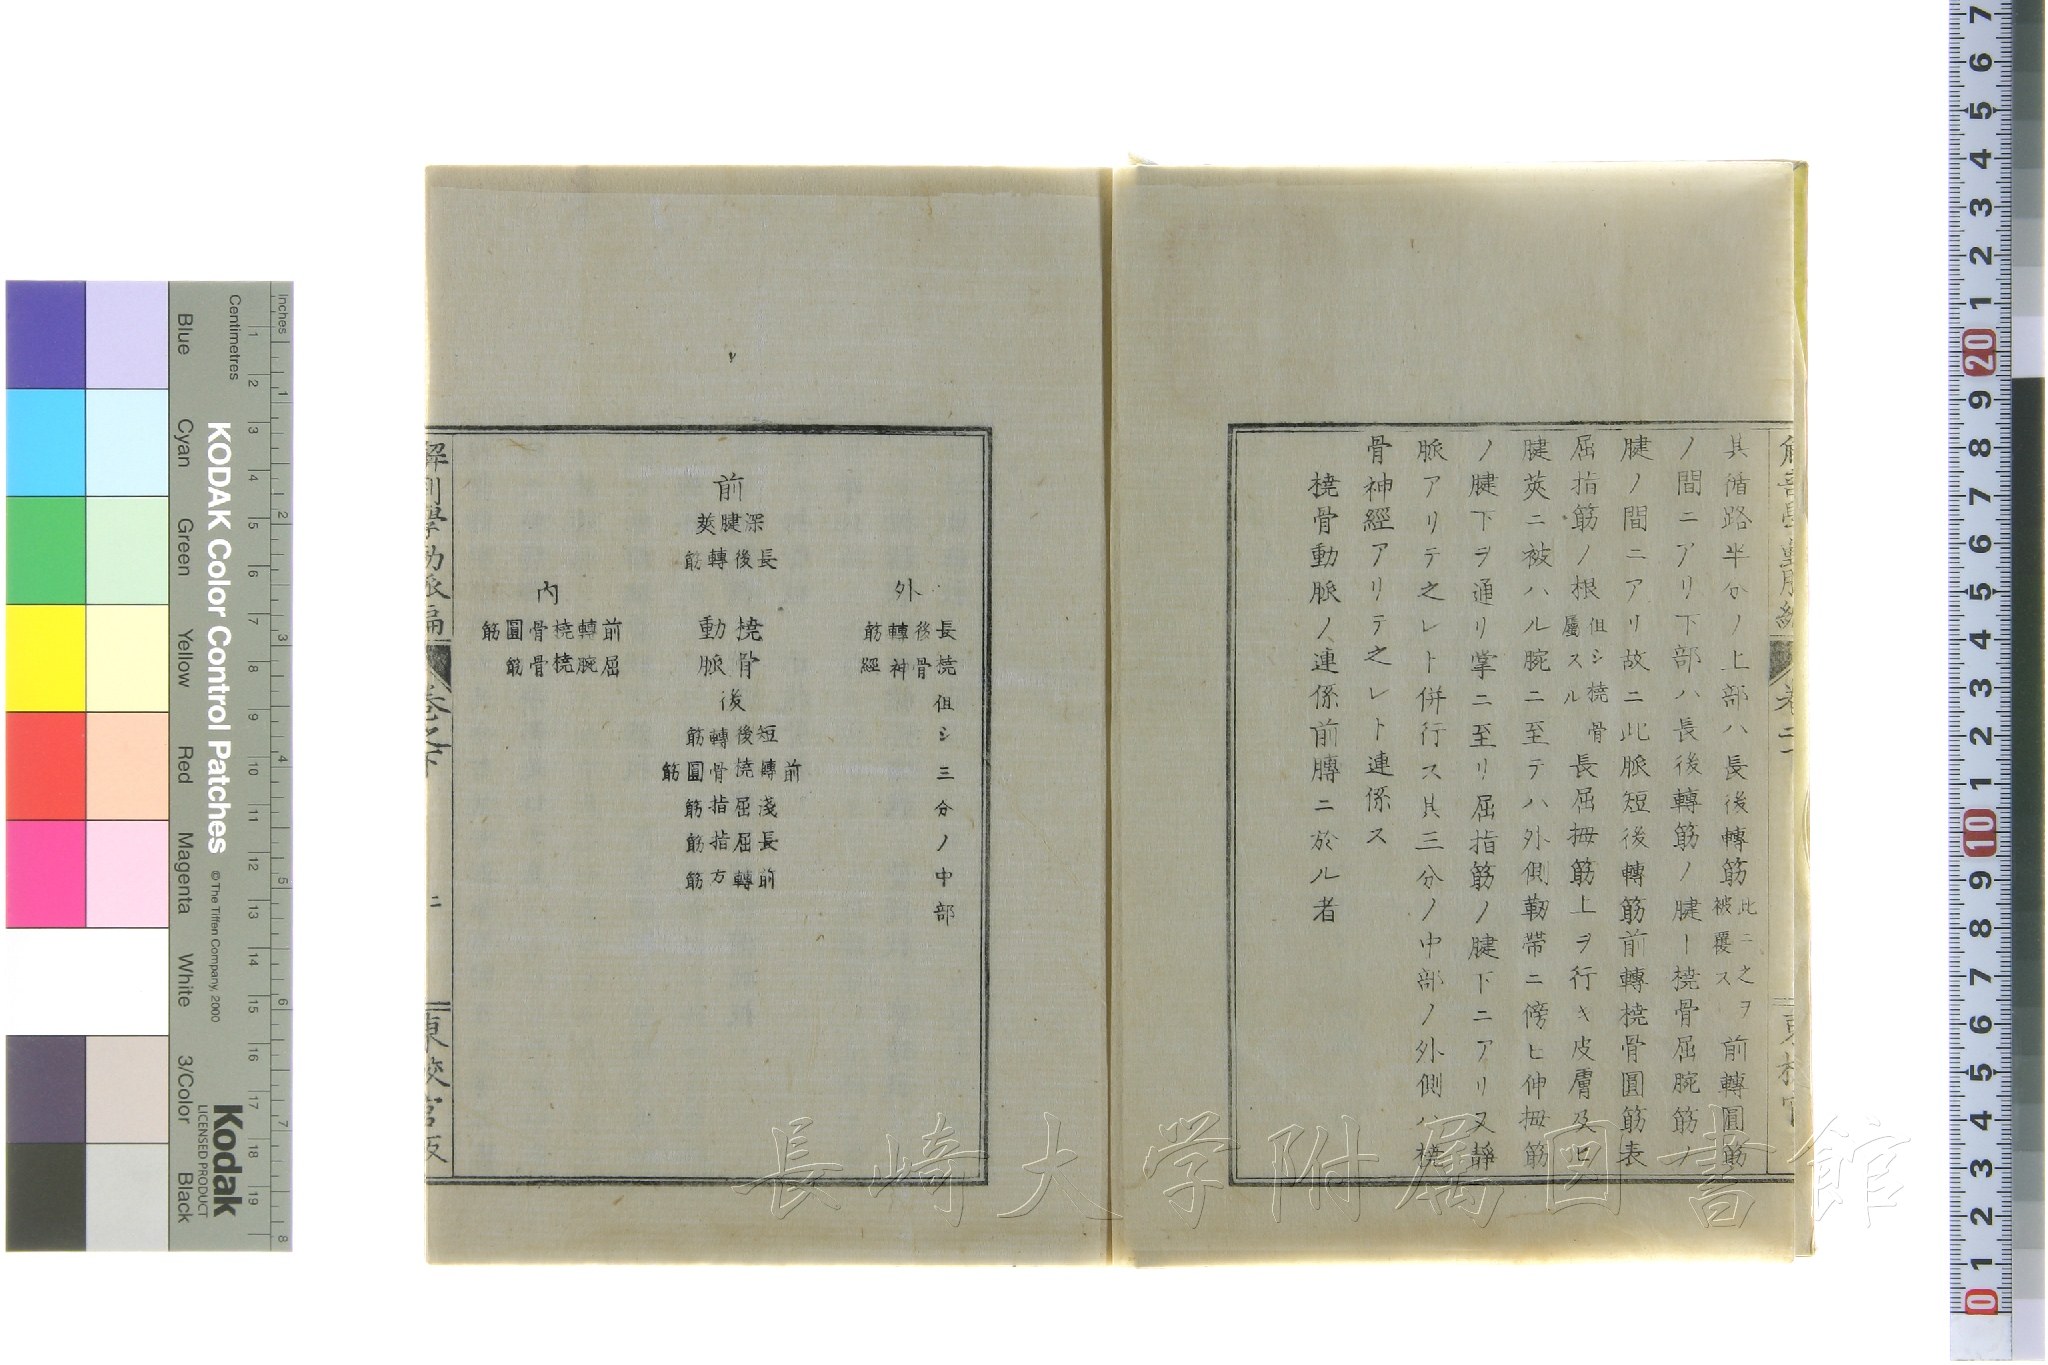 其循路半分ノ上部ハ長後轉筋此ニ之ヲ被覆ス前轉圓筋
ノ間ニアリ下部ハ長後轉筋ノ腱ト橈骨屈腕筋ノ
腱ノ間ニアリ故ニ此脈短後轉筋前轉橈骨圓筋表
屈指筋ノ根但シ橈骨屬スル長屈拇筋上ヲ行キ皮膚及ヒ
腱莢ニ被ハル腕ニ至テハ外側靭帶ニ傍ヒ伸拇筋
ノ腱下ヲ通リ掌ニ至リ屈指筋ノ腱下ニアリ又靜
脈アリテ之レト併行ス其三分ノ中部ノ外側ハ橈
骨神經アリテ之レト連係ス
橈骨動脈ノ連係前膊ニ於ル者
外
長後轉筋
橈骨神經
但シ三分ノ中部
前
深腱莢
長後轉筋
橈骨動脈
後
短後轉筋
前轉橈骨圓筋
淺屈指筋
長屈指筋
前轉方筋
內
前轉橈骨圓筋
屈腕橈骨筋
解剖學動脈編
卷之下
二
東校官版
長崎大学附属図書館
KODAK Color Control Patches
© The Tiffen Company, 2000
Kodak
LICENSED PRODUCT
Inches
Centimetres
Blue
Cyan
Green
Yellow
Red
Magenta
White
3/Color
Black